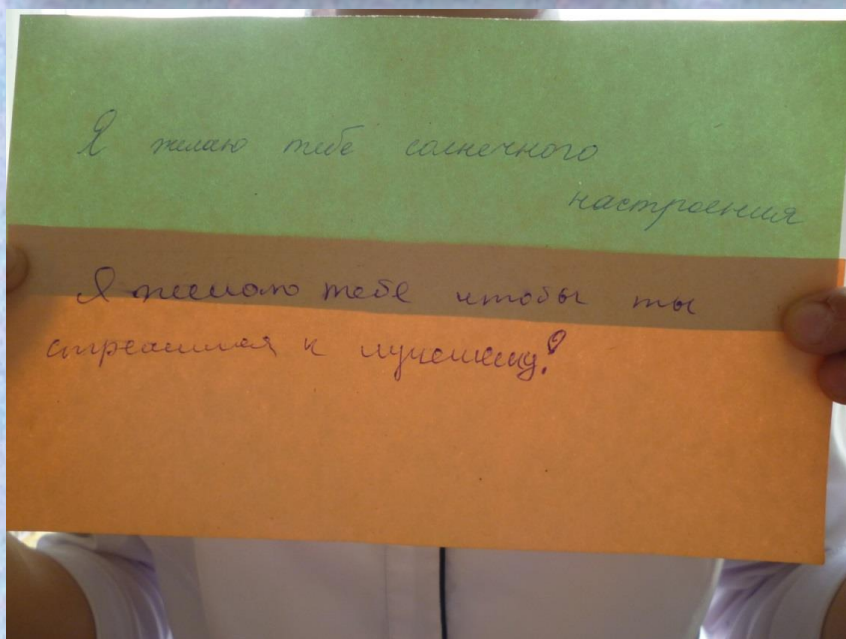 Я желаю тебе солнечного
настроения
Я желаю тебе чтобы ты
стремился к лучшему!